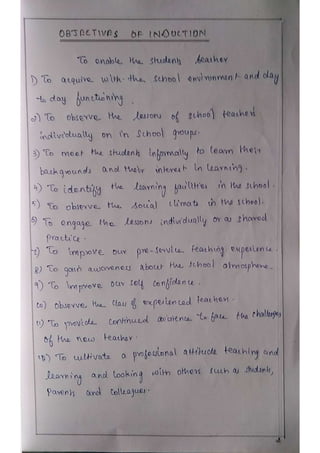 OBJECTIVES OF INDUCTION
To enable the students teacher
1) To acquire with the school environment and day
to day functioning.
2) To observe the lessons of school teachers
individually on in school groups.
3) To meet the students informally to learn their
backgrounds and their interest in learning.
4) To identify the learning facilities in the school.
5) To observe the social climate in the school.
6) To engage the lessons individually or as shared
practice.
7) To improve our pre-service teaching experience.
8) To gain awareness about the school atmosphere.
9) To improve our self confidence.
10) observe the class of experienced teacher.
11) To provide continued to face the challenges
of the new teacher.
12) To cultivate a professional attitude teaching and
learning and looking with others such as students,
Parents and colleagues.